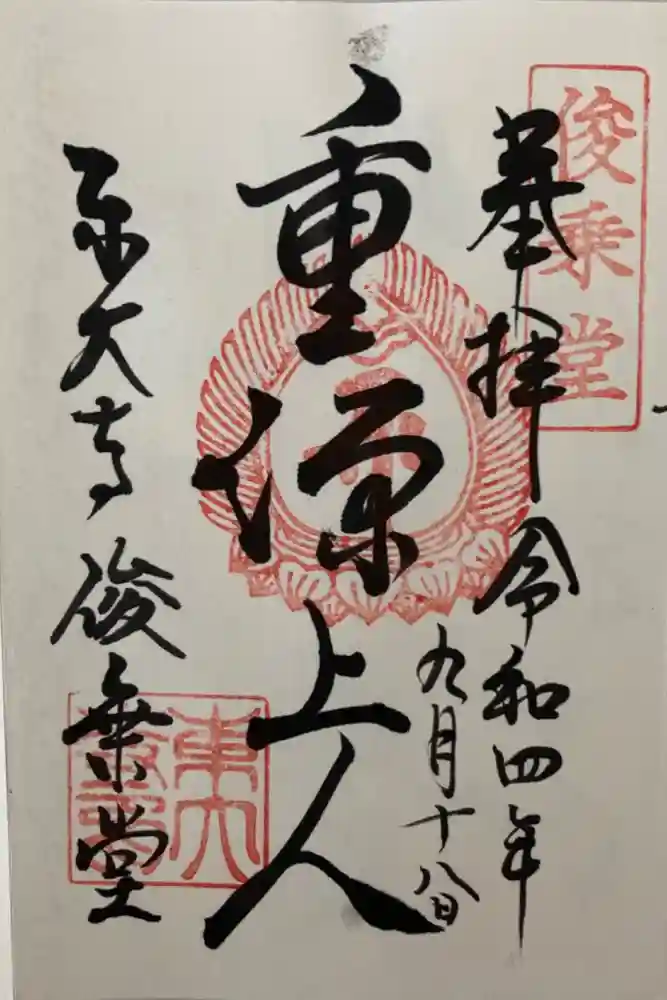 俊乗堂
奉拝
令和四年
九月十八日
重源上人
東大寺
俊乗堂